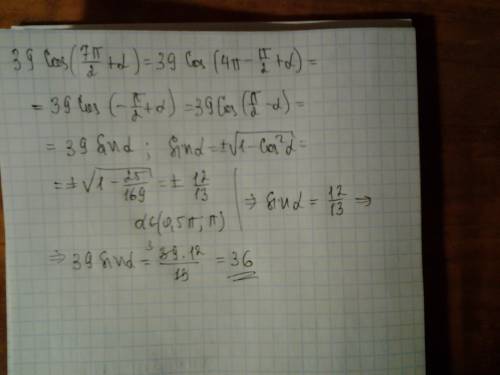 39 cos(7π/2 + α) = 39 cos(4π - π/2 + α) =
= 39 cos(-π/2 + α) = 39 cos(π/2 - α) =
= 39 sinα ; sinα = ±√(1 - cos²α) =
= ±√(1 - 25/169) = ± 12/13 | ⇒ sinα = 12/13 ⇒
α ∈ (0,5π; π)
⇒ 39 sinα = 39 · 12 / 13 = 36